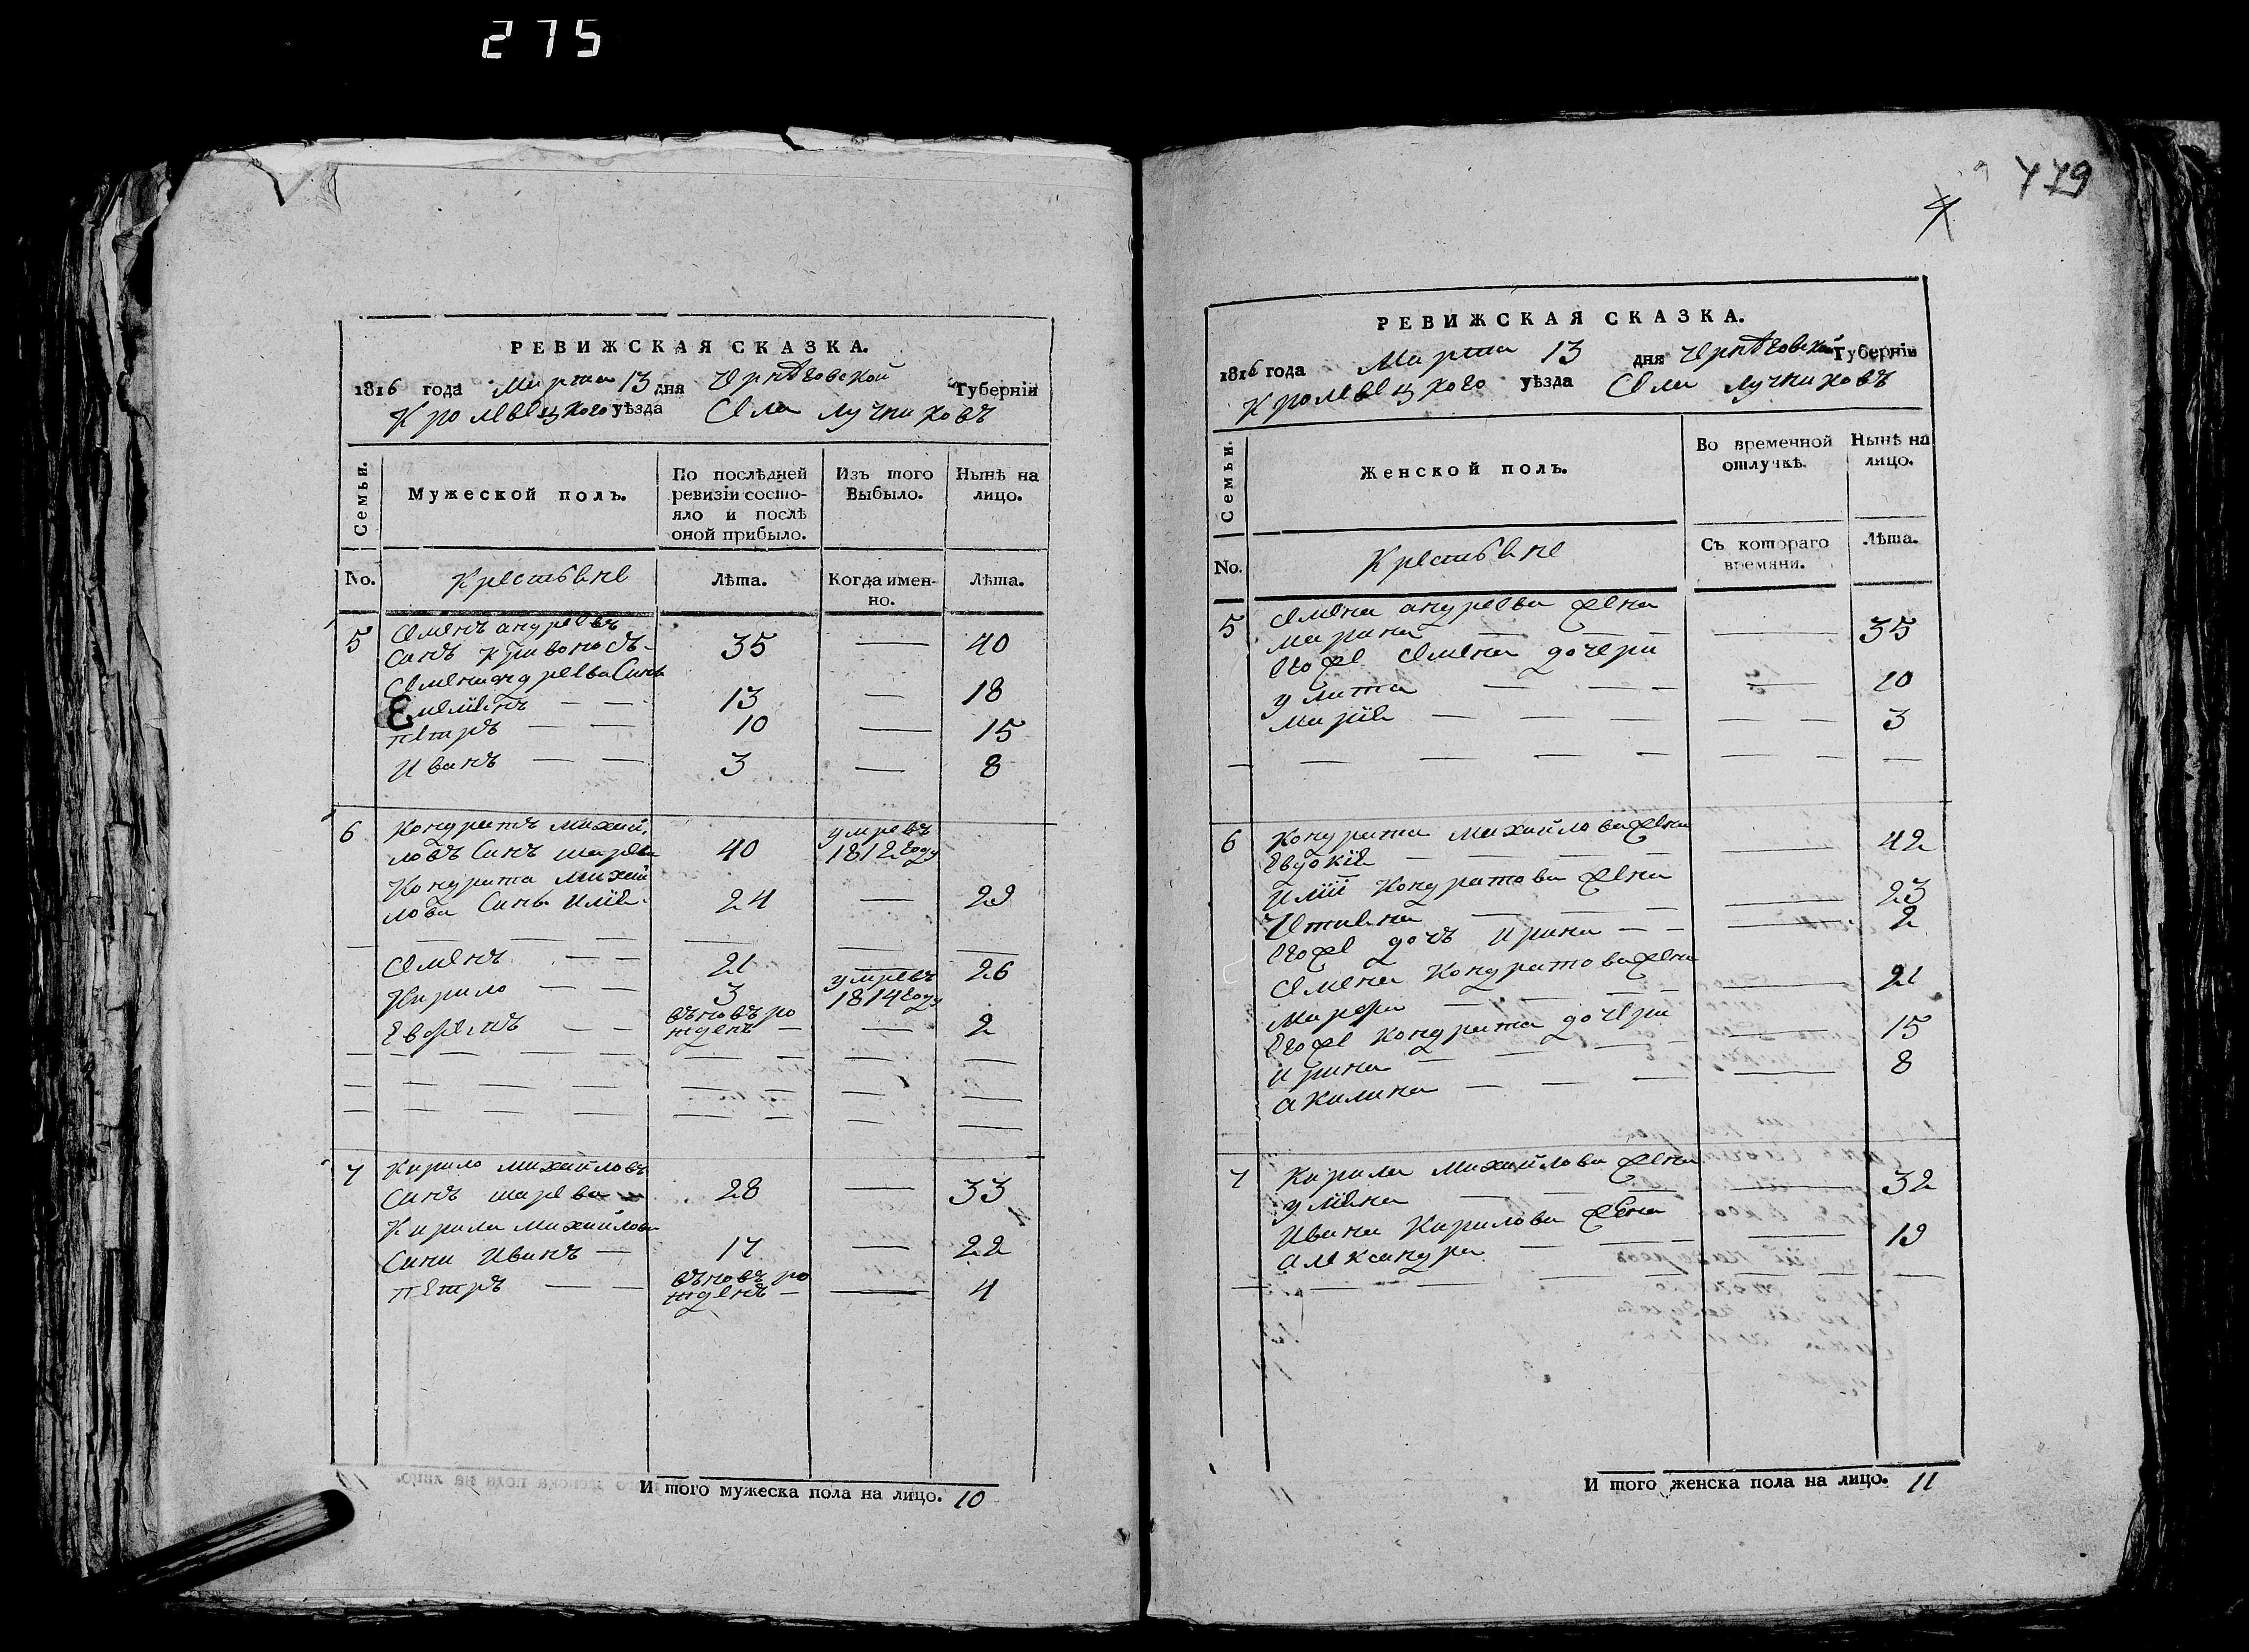 275
РЕВИЖСКАЯ СКАЗКА.
1816 года Марта 13 дня Чернѣговской Губерніи
Кролевецкого уѣзда Села Лучниковъ
Семьи.
Мужеской полъ.
По послѣдней ревизіи состояло и послѣ оной прибыло.
Изъ того Выбыло.
Нынѣ на лицо.
No.
Крестьяне
Лѣта.
Когда имен-
но.
Лѣта.
5 Семенъ андреевъ
Синъ Кривоносъ 35 — 40
Семена андреева Синъ
Емелiянъ — — 13 — 18
петръ — — 10 — 15
Иванъ — — 3 — 8
6 Кондратъ михай,
ловъ Синъ шарева 40 умревъ 1812 году
Кондрата михай
лова Синъ илiя 24 — 29
Семенъ — — 21 — 26
Кирило — — 3 умревъ 1814 году
Евфимъ — — въновъ рожденъ — — 2
7 Кирило михайловъ
Синъ шарева 28 — 33
Кирила михайлова
Сини Иванъ — 17 — 22
петръ — — въновъ рожденъ — — 4
И того мужеска пола на лицо. 10
479
РЕВИЖСКАЯ СКАЗКА.
1816 года Марта 13 дня Чернѣговской Губерніи
Кролевецкого уѣзда Села Лучниковъ
Семьи.
Женской полъ.
Во временной отлучкѣ.
Нынѣ на лицо.
No.
Крестьяне
Съ котораго времяни.
Лѣта.
5 Семена андреева жена
марина — — — — 35
Егоже Семена дочери
улита — — — — 10
марiя — — — — 3
6 Кондрата михайлова жена
Евдокiя — — — — 42
Илiи Кондратова жена
Ятияна — — — 23
Егоже дочъ ирина — — — 2
Семена Кондратова жена
марфа — — — — 21
Егоже Кондрата дочери
ирина — — — — 15
акилина — — — — 8
7 Кирила михайлова жена
улiяна — — — — 32
Ивана Кирилова жена
александра — — — 19
И того женска пола на лицо. 11